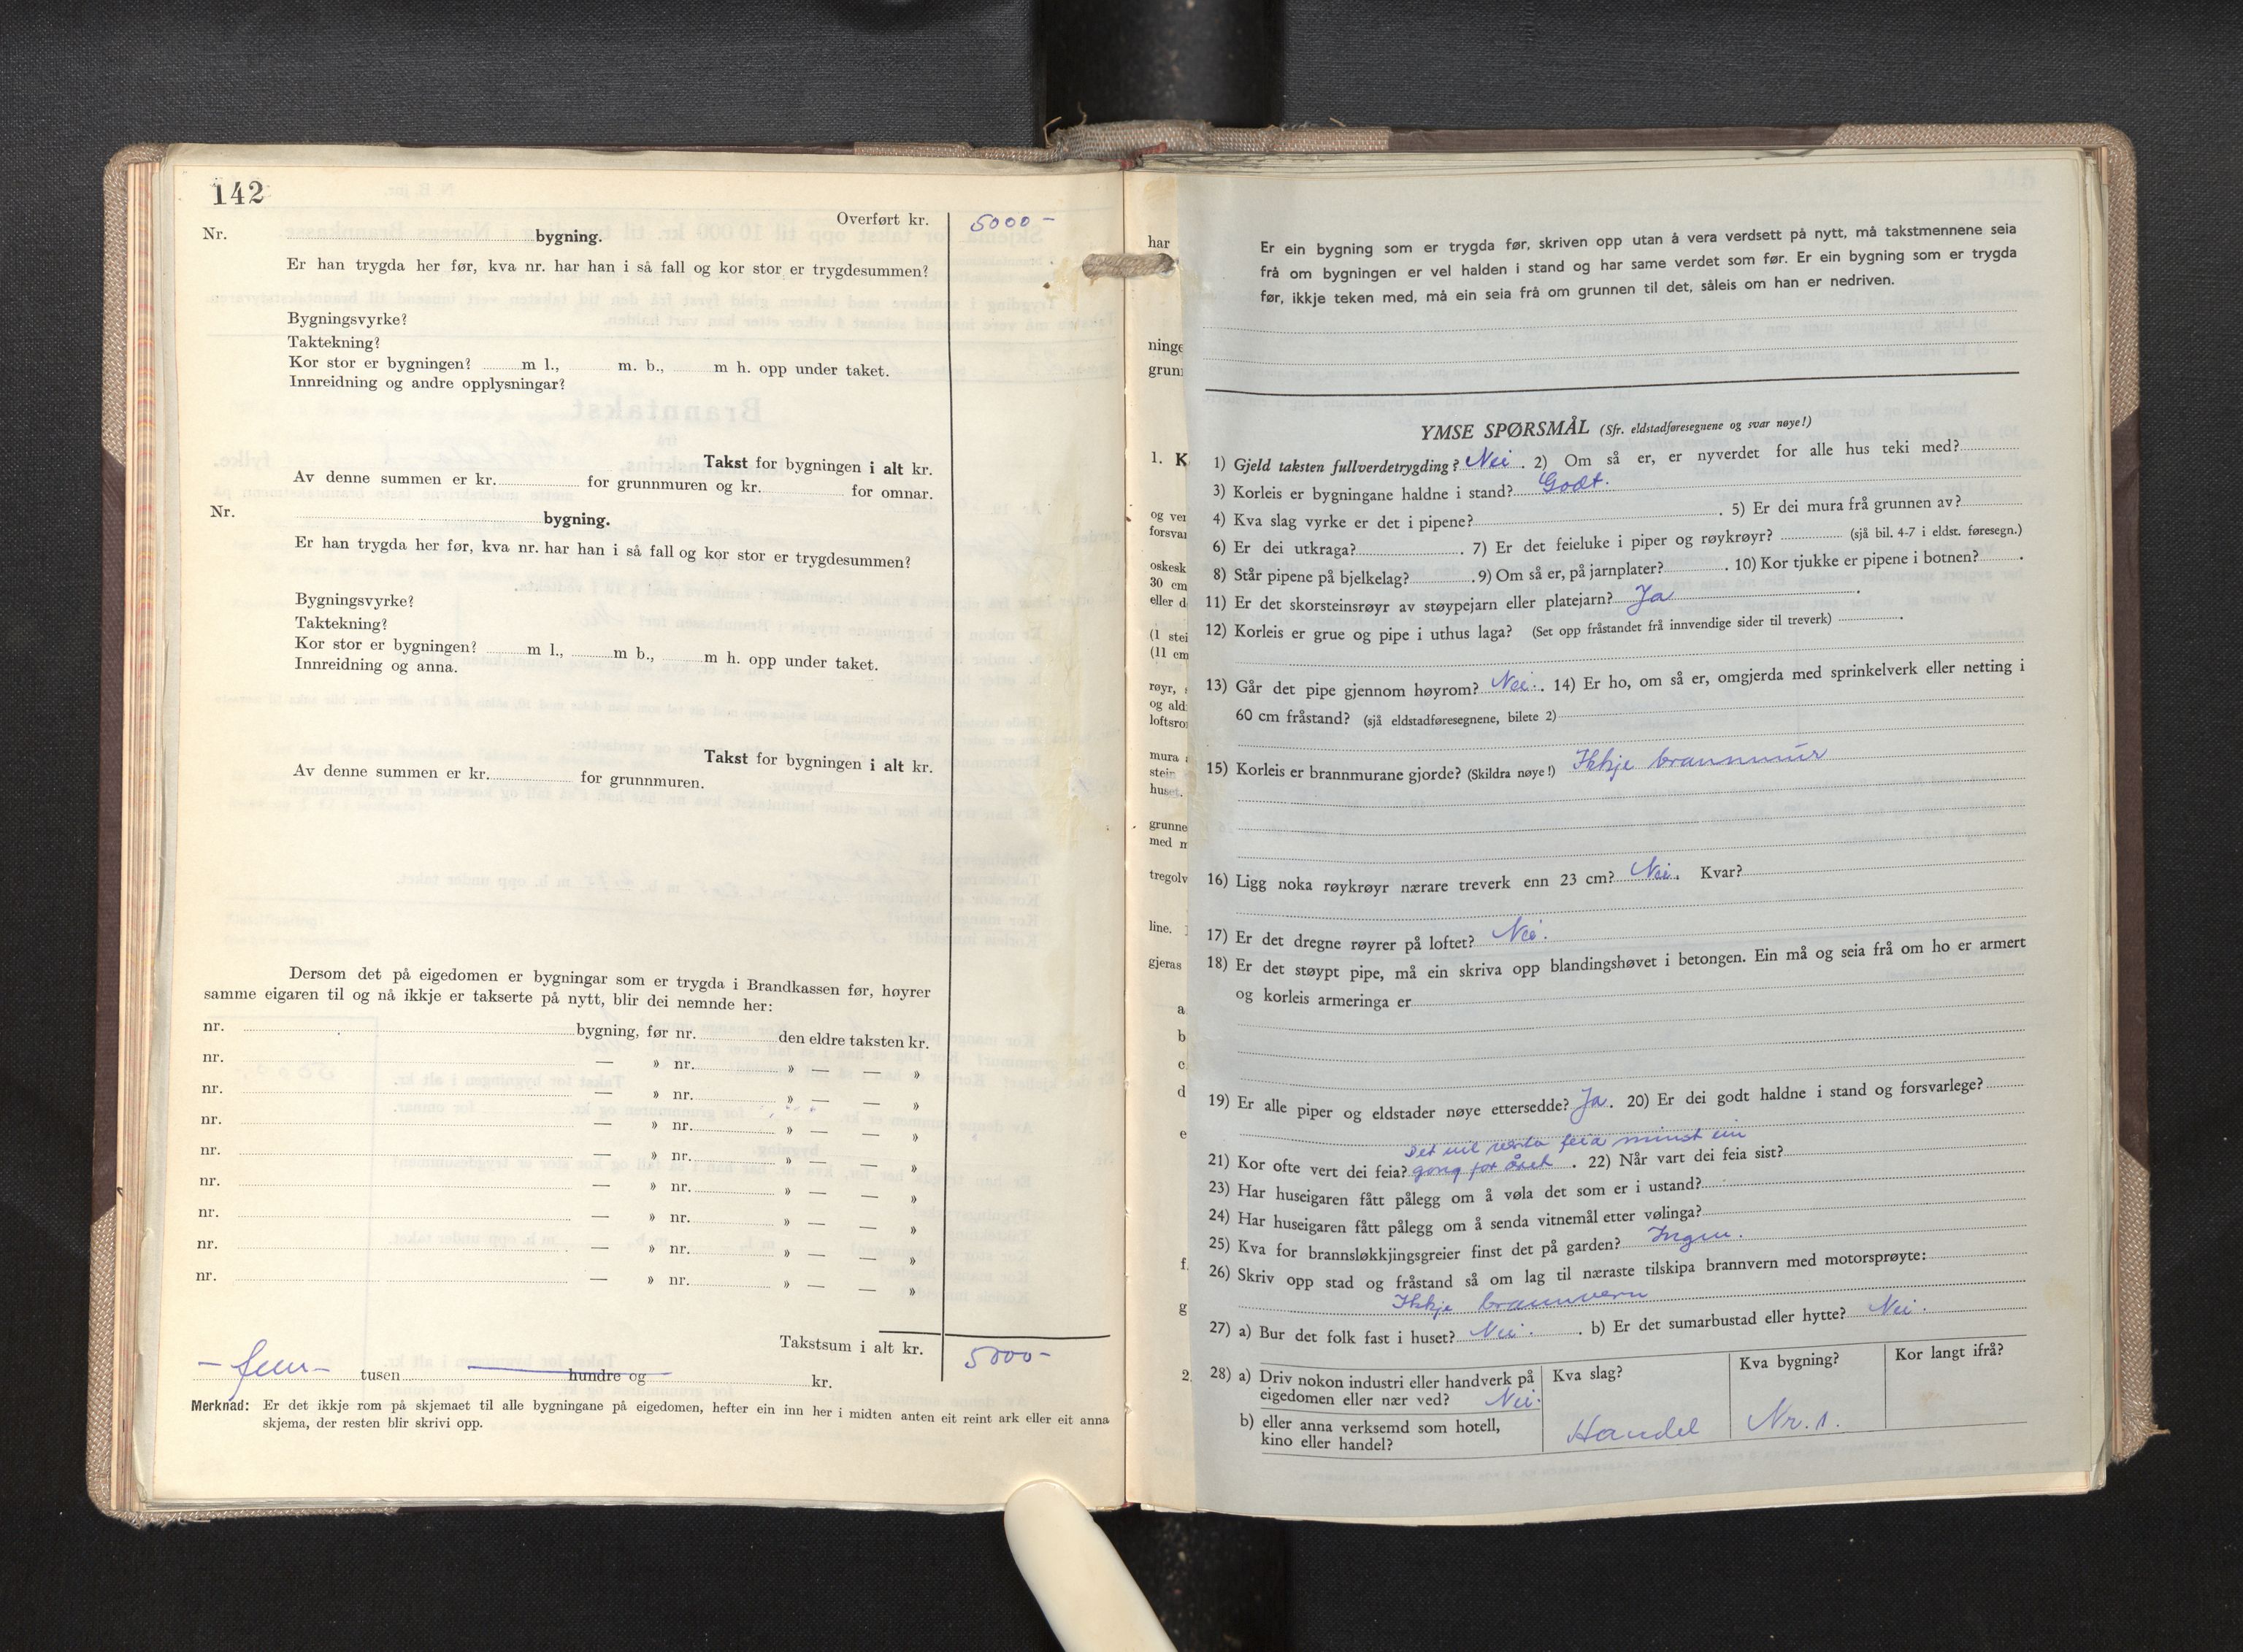 142
Overført kr. 5000-
Nr. bygning.
Er han trygda her før, kva nr. har han i så fall og kor stor er trygdesummen?
Bygningsvyrke?
Taktekning?
Kor stor er bygningen? m l., m. b., m h. opp under taket.
Innreidning og andre opplysningar?
Takst for bygningen i alt kr.
Av denne summen er kr. for grunnmuren og kr. for omnar.
Nr. bygning.
Er han trygda her før, kva nr. har han i så fall og kor stor er trygdesummen?
Bygningsvyrke?
Taktekning?
Kor stor er bygningen? m l., m b., m h. opp under taket.
Innreidning og anna.
Takst for bygningen i alt kr.
Av denne summen er kr. for grunnmuren.
Dersom det på eigedomen er bygningar som er trygda i Brandkassen før, høyrer
samme eigaren til og nå ikkje er takserte på nytt, blir dei nemnde her:
nr. bygning, før nr. den eldre taksten kr.
nr. — » nr. » — — »
nr. — » nr. » — — »
nr. — » nr. » — — »
nr. — » nr. » — — »
nr. — » nr. » — — »
nr. — » nr. » — — »
nr. — » nr. » — — »
nr. — » nr. » — — »
Takstsum i alt kr. 5000-
- fem - tusen hundre og kr.
Merknad: Er det ikkje rom på skjemaet til alle bygningane på eigedomen, hefter ein inn her i midten anten eit reint ark eller eit anna
skjema, der resten blir skrivi opp.
har
ninge
grun
1. K
og ver
forsvar
oskesk
30 cm
eller d
(1 stei
(11 cm
røyr, s
og ald
loftsro
mura
stein
huset.
grunne
med m
tregolv
line.
gjeras
a
b
c
d
e
f.
g
2.
Er ein bygning som er trygda før, skriven opp utan å vera verdsett på nytt, må takstmennene seia
frå om bygningen er vel halden i stand og har same verdet som før. Er ein bygning som er trygda
før, ikkje teken med, må ein seia frå om grunnen til det, såleis om han er nedriven.
YMSE SPØRSMÅL (Sfr. eldstadføresegnene og svar nøye!)
1) Gjeld taksten fullverdetrygding? Nei. 2) Om så er, er nyverdet for alle hus teki med?
3) Korleis er bygningane haldne i stand? Godt.
4) Kva slag vyrke er det i pipene? . 5) Er dei mura frå grunnen av?
6) Er dei utkraga? . 7) Er det feieluke i piper og røykrøyr? (sjå bil. 4-7 i eldst. føresegn.)
8) Står pipene på bjelkelag? . 9) Om så er, på jarnplater? . 10) Kor tjukke er pipene i botnen? .
11) Er det skorsteinsrøyr av støypejarn eller platejarn? Ja .
12) Korleis er grue og pipe i uthus laga? (Set opp fråstandet frå innvendige sider til treverk) .
13) Går det pipe gjennom høyrom? Nei. 14) Er ho, om så er, omgjerda med sprinkelverk eller netting i
60 cm fråstand? (sjå eldstadføresegnene, bilete 2)
15) Korleis er brannmurane gjorde? (Skildra nøye!) Ikkje brannmúr
16) Ligg noka røykrøyr nærare treverk enn 23 cm? Nei. Kvar?
17) Er det dregne røyrer på loftet? Nei.
18) Er det støypt pipe, må ein skriva opp blandingshøvet i betongen. Ein må og seia frå om ho er armert
og korleis armeringa er
19) Er alle piper og eldstader nøye ettersedde? Ja. 20) Er dei godt haldne i stand og forsvarlege?
Det vil verta feia minst ein
21) Kor ofte vert dei feia? gong for året . 22) Når vart dei feia sist?
23) Har huseigaren fått pålegg om å vøla det som er i ustand?
24) Har huseigaren fått pålegg om å senda vitnemål etter vølinga?
25) Kva for brannsløkkjingsgreier finst det på garden? Ingen.
26) Skriv opp stad og fråstand så om lag til næraste tilskipa brannvern med motorsprøyte:
Ikkje brannvern
27) a) Bur det folk fast i huset? Nei. . b) Er det sumarbustad eller hytte? Nei.
28) a) Driv nokon industri eller handverk på eigedomen eller nær ved? Nei.
Kva slag? Kva bygning? Kor langt ifrå?
b) eller anna verksemd som hotell, kino eller handel? Handel Nr. 1.